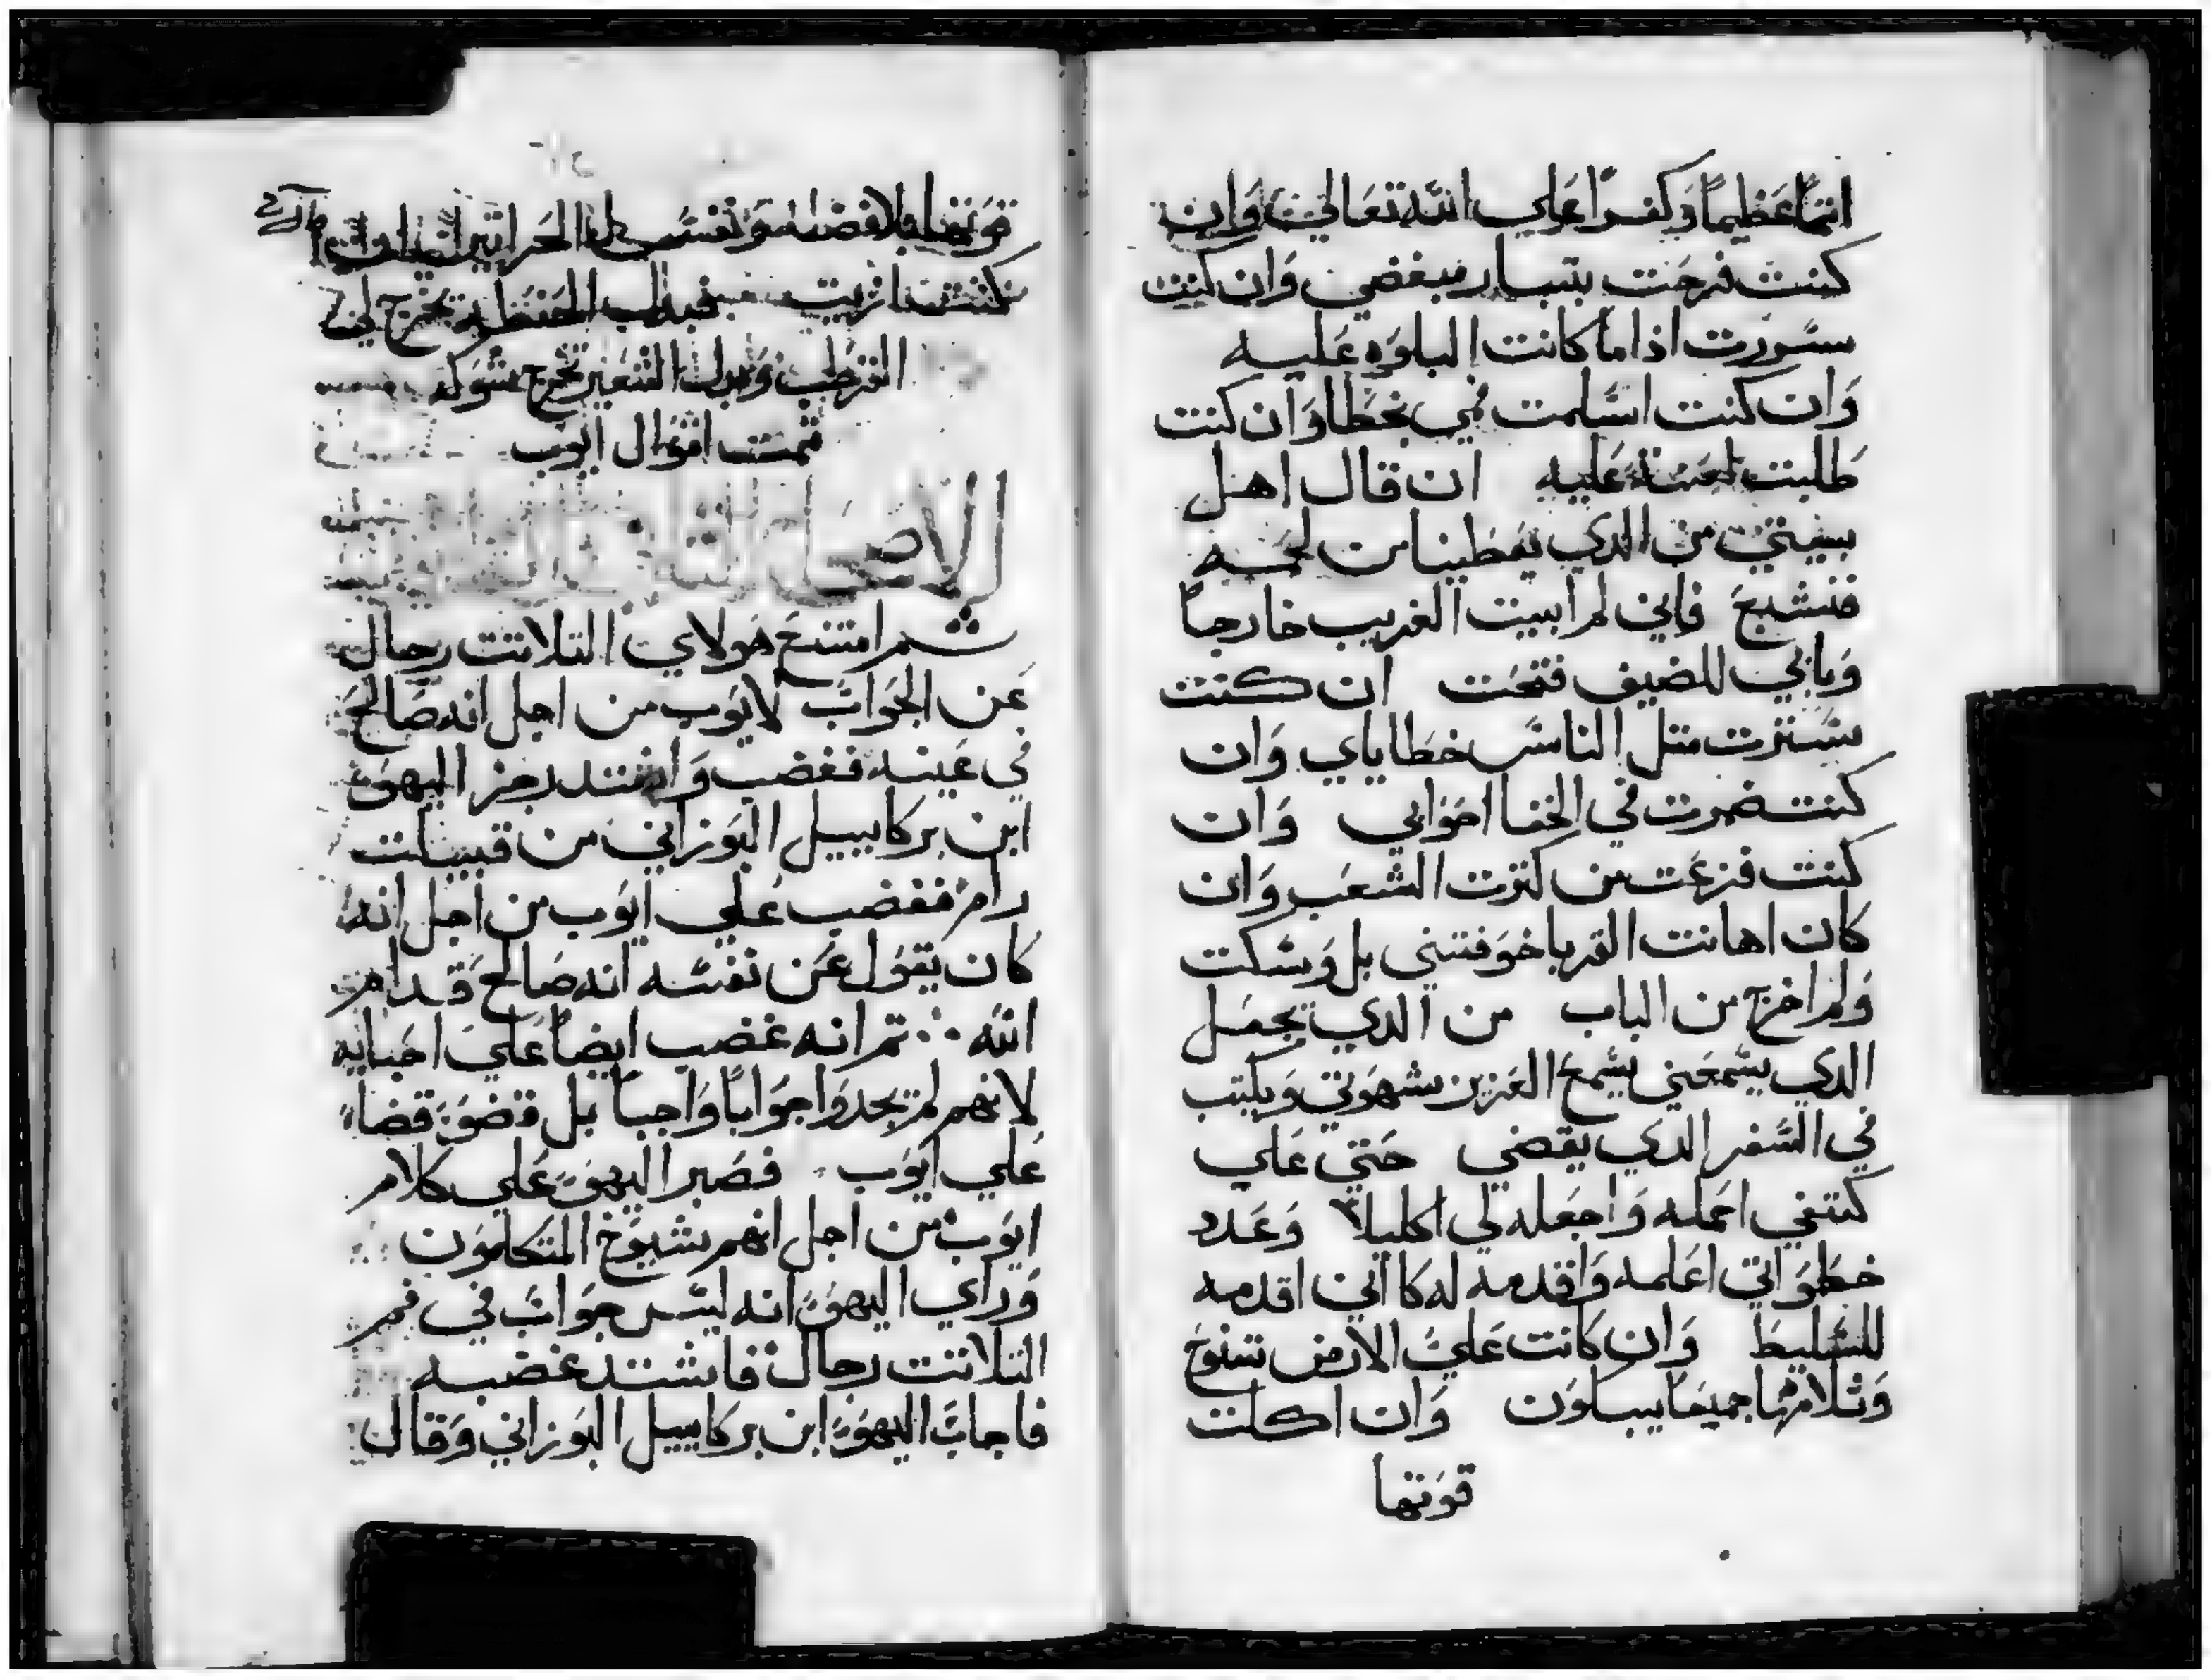 اثماً عظيماً وكفراً علي الله تعالي وان
كنت فرحت بتبار مبغضي وان كنت
سررت اذا ما كانت البلوه عليه
وان كنت اسلمت في بخطا وان كنت
طلبت لعنة عليه ان قال اهل
بيتي من الدي يعطينا من لحمه
فنشبع فاني لم ابيت الغريب خارجاً
وبابي للضيف فتحت ان كنت
سترت متل الناس خطاياي وان
كنت ضمرت في الخفا اخوابي وان
كنت فزعت من كترت الشعب وان
كان اهانت القربا خوفتني بل وسكت
ولم اخرج من الباب من الدي يجعل
الدي يسمعني يسمع العزيز شهوتي ويكتب
في السفر الدي يقضي حتي علي
كتفي احمله واجعله لي اكليلاً وعدد
خطواتي اعلمه واقدمه له كاني اقدمه
للسليط وان كانت علي الارض تنوح
وتلامها جميعاً يبكون وان اكلت
قوتها
قوتها بلا فضه ونفس
كنت فبدل الحنطه تخرج لي
وبدل الشعير تخرج شوك
تمت اقوال ايوب
الاصحاح
ثم امتنع هولاي التلاتت رجال
عن الجواب لايوب من اجل انه صالح
في عينه فغضب واشتد رجز اليهو
ابن بركاييل البوزاني من قبيلت
رام فغضب علي ايوب من اجل انه
كان يقول عن نفسه انه صالح قدام
الله ∴ تم انه غضب ايضاً علي احبايه
لانهم لم يجدوا جواباً واجباً بل قضو قضاء
علي ايوب فصبر اليهو علي كلام
ايوب من اجل انهم شيوخ المتكلمون
وراي اليهو انه ليس جواب في فم
التلاتت رجال فاشتد غضبه
فاجاب اليهو ابن بركاييل البوزاني وقال